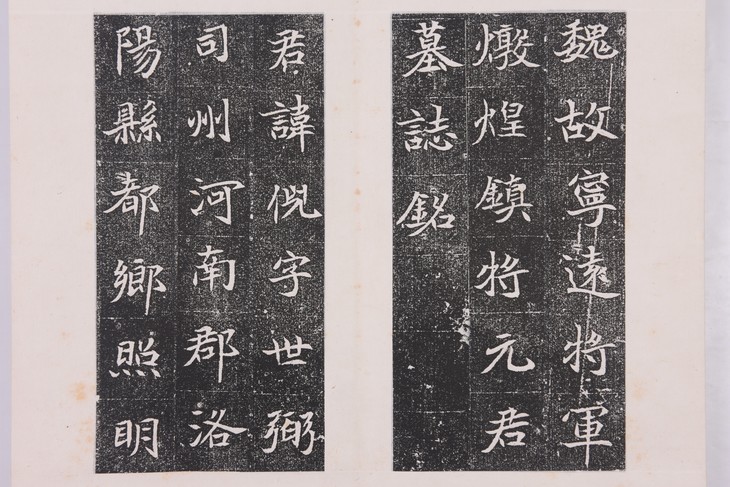 魏故寧遠將軍
燉煌鎮將元君
墓誌銘
君諱倪字世弼
司州河南郡洛
陽縣都鄉照明